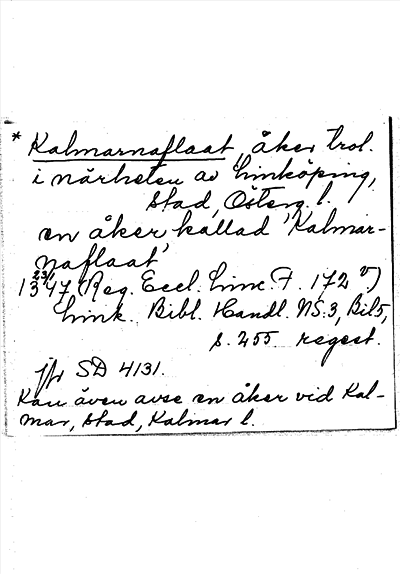 * Kalmarnaflaat, åker trol.
i närheten av Linköping,
stad, Österg. l.
en åker kallad 'Kalmar-
naflaat'
23/1
1347 (Reg. Eccl. Linc. F. 172 v)
Link. Bibl. Handl. NS.3, Bil 5,
s. 255 regest.
jfr SD 4131.
Kan även avse en åker vid Kal-
mar, stad, Kalmar l.